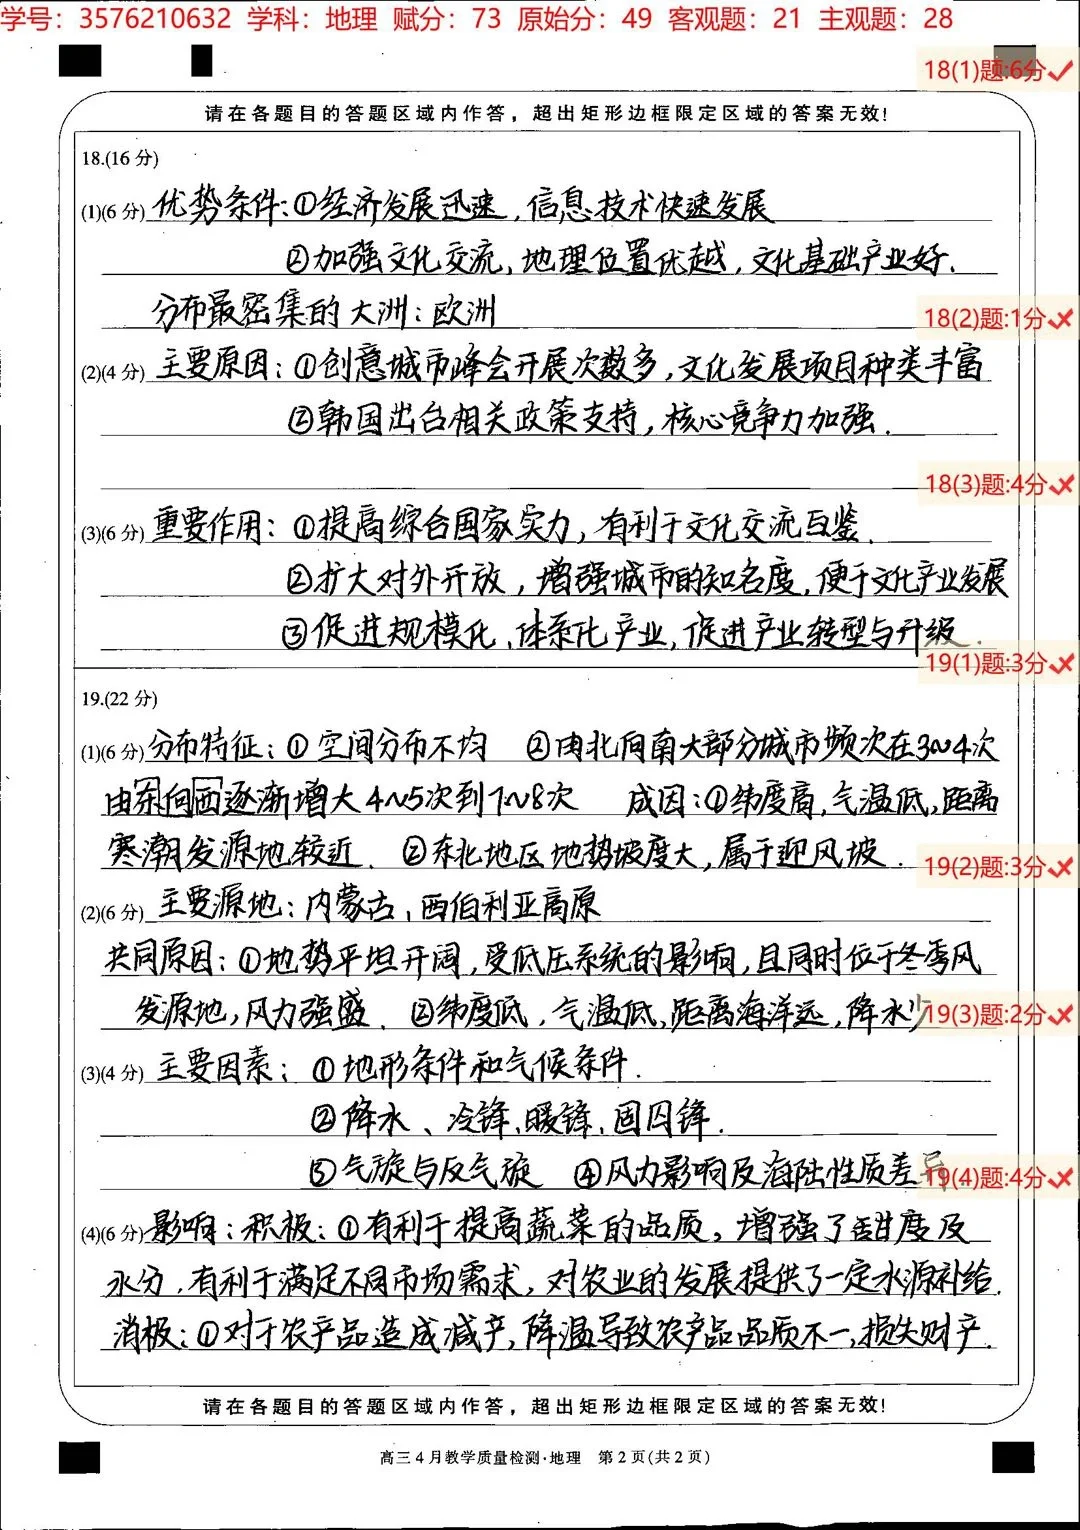 学号：3576210632 学科：地理 赋分：73 原始分：49 客观题：21 主观题：28
18(1)题:6分✓
请在各题目的答题区域内作答，超出矩形边框限定区域的答案无效!
18.(16 分)
(1)(6 分) 优势条件：①经济发展迅速，信息技术快速发展
②加强文化交流，地理位置优越，文化基础产业好.
分布最密集的大洲：欧洲
18(2)题:1分✗
(2)(4 分) 主要原因：①创意城市峰会开展次数多，文化发展项目种类丰富
②韩国出台相关政策支持，核心竞争力加强.
18(3)题:4分✗
(3)(6 分) 重要作用：①提高综合国家实力，有利于文化交流互鉴.
②扩大对外开放，增强城市的知名度，便于文化产业发展
③促进规模化、体系化产业，促进产业转型与升级.
19(1)题:3分✗
19.(22 分)
(1)(6 分) 分布特征：①空间分布不均 ②由北向南大部分城市频次在3~4次
由东向西逐渐增大4~5次到7~8次 成因：①纬度高，气温低，距离
寒潮发源地较近. ②东北地区地势坡度大，属于迎风坡.
19(2)题:3分✗
(2)(6 分) 主要源地：内蒙古，西伯利亚高原
共同原因：①地势平坦开阔，受低压系统的影响，且同时位于冬季风
发源地，风力强盛. ②纬度低，气温低，距离海洋远，降水少
19(3)题:2分✗
(3)(4 分) 主要因素：①地形条件和气候条件.
②降水、冷锋、暖锋、固囚锋.
③气旋与反气旋 ④风力影响及海陆性质差异
19(4)题:4分✗
(4)(6 分) 影响：积极：①有利于提高蔬菜的品质，增强了甜度及
水分，有利于满足不同市场需求，对农业的发展提供了一定水源补给.
消极：①对于农产品造成减产，降温导致农产品品质不一，损失财产.
请在各题目的答题区域内作答，超出矩形边框限定区域的答案无效!
高三4月教学质量检测·地理 第2页(共2页)